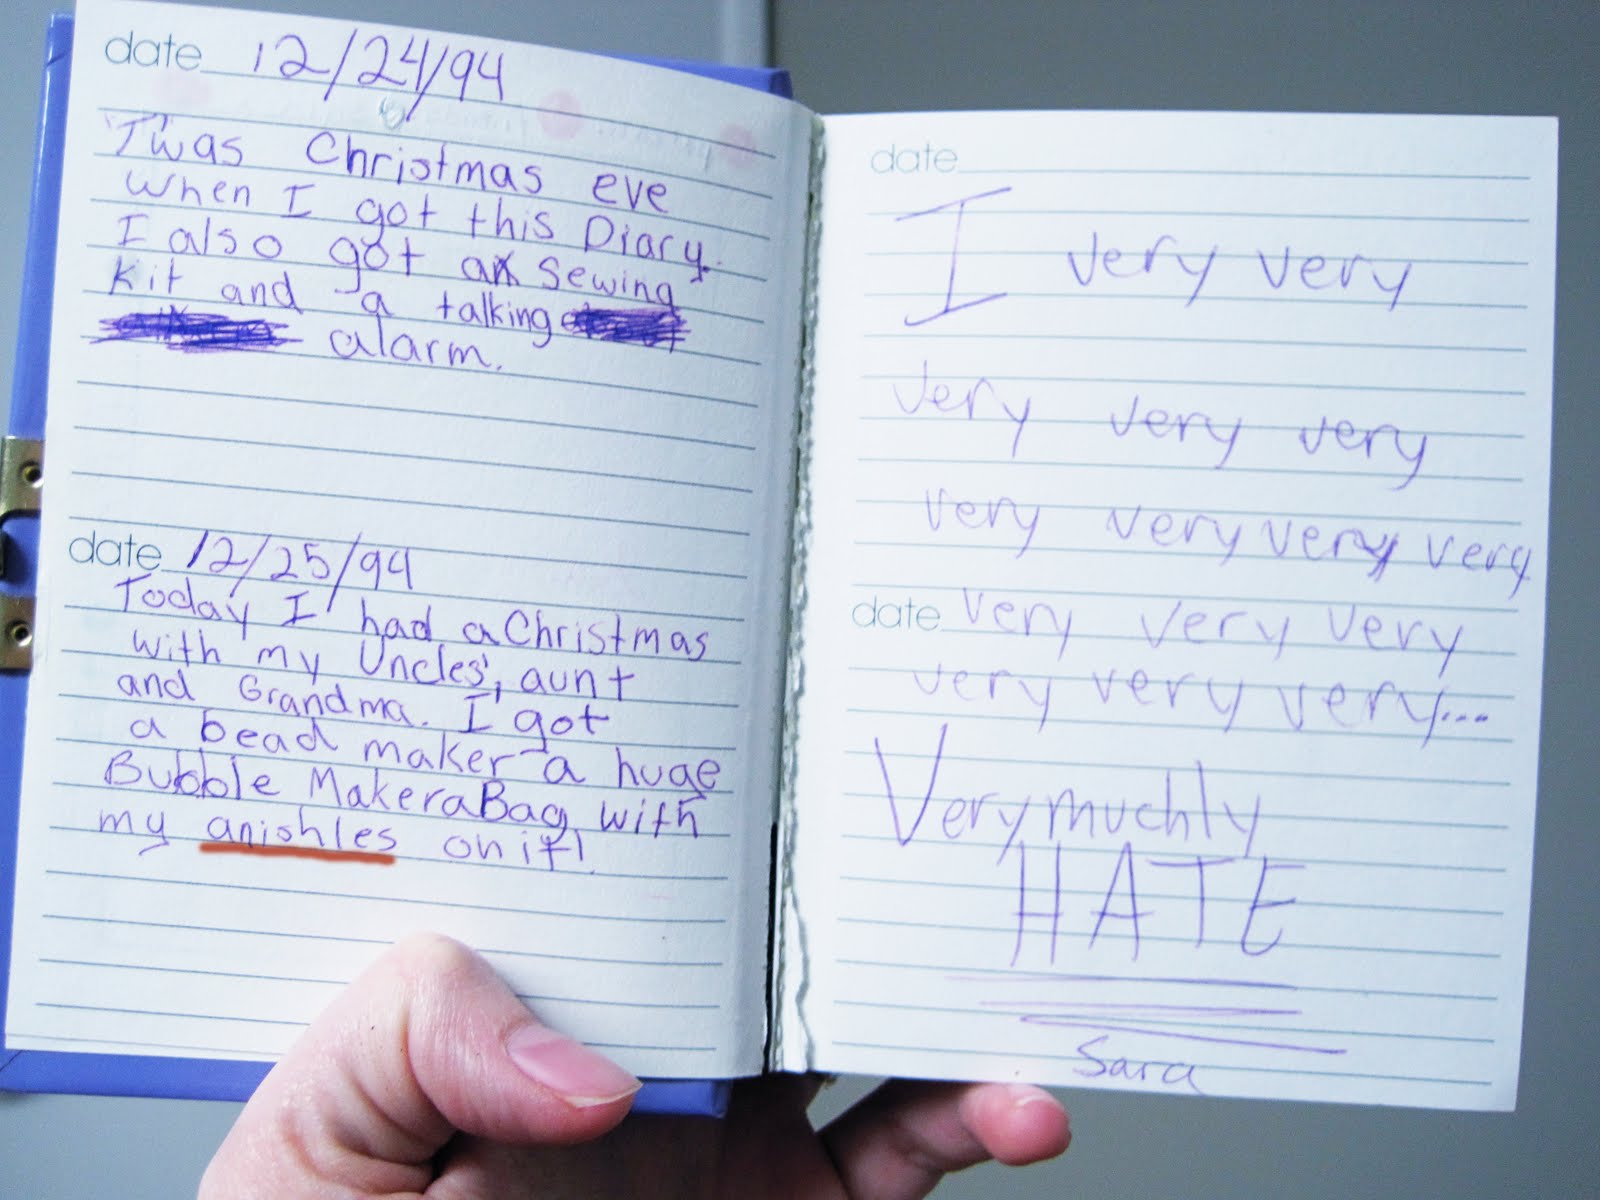 date 12/24/94
'Twas Christmas eve
when I got this Diary.
I also got a sewing
kit and a talking
alarm.
date 12/25/94
Today I had a Christmas
with my Uncles', aunt
and Grandma. I got
a bead maker a huge
Bubble Maker a Bag with
my anishles on it!
date
I very very
very very very
very very very very
date very very very
very very very...
Very muchly
HATE
Sara